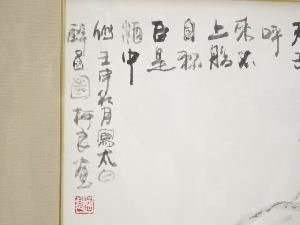 呼
来不
上船
自称
臣是
酒中
仙壬申秋月写太白
醉酒图柯良画